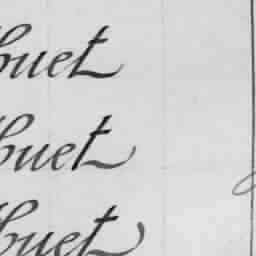 buet
buet
buet